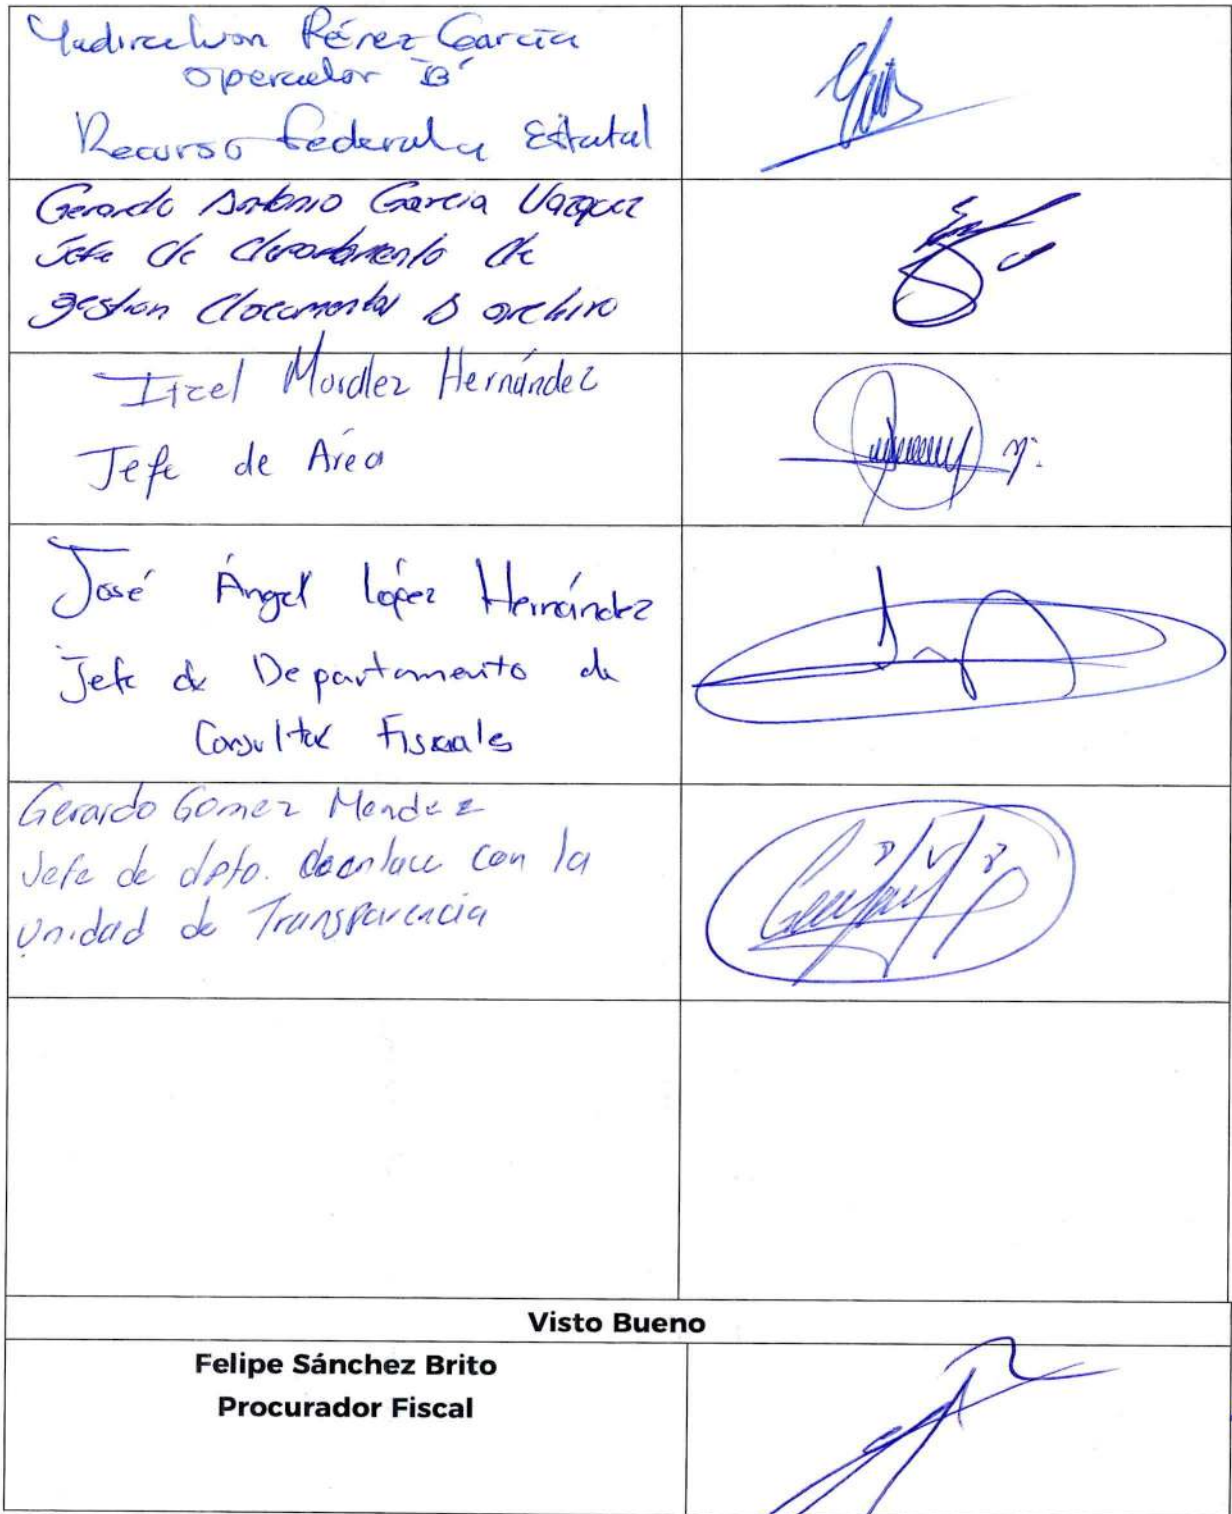 Pérez García
Operador "B"
Recurso Federal y Estatal
Gerardo Antonio Garcia Vazquez
Jefe de departamento de
gestion documental y archivo
Itzel Moralez Hernández
Jefe de Área
José Ángel López Hernández
Jefe de Departamento de
Consultas Fiscales
Gerardo Gomez Mendez
Jefe de dpto. de enlace con la
Unidad de Transparencia
Visto Bueno
Felipe Sánchez Brito
Procurador Fiscal